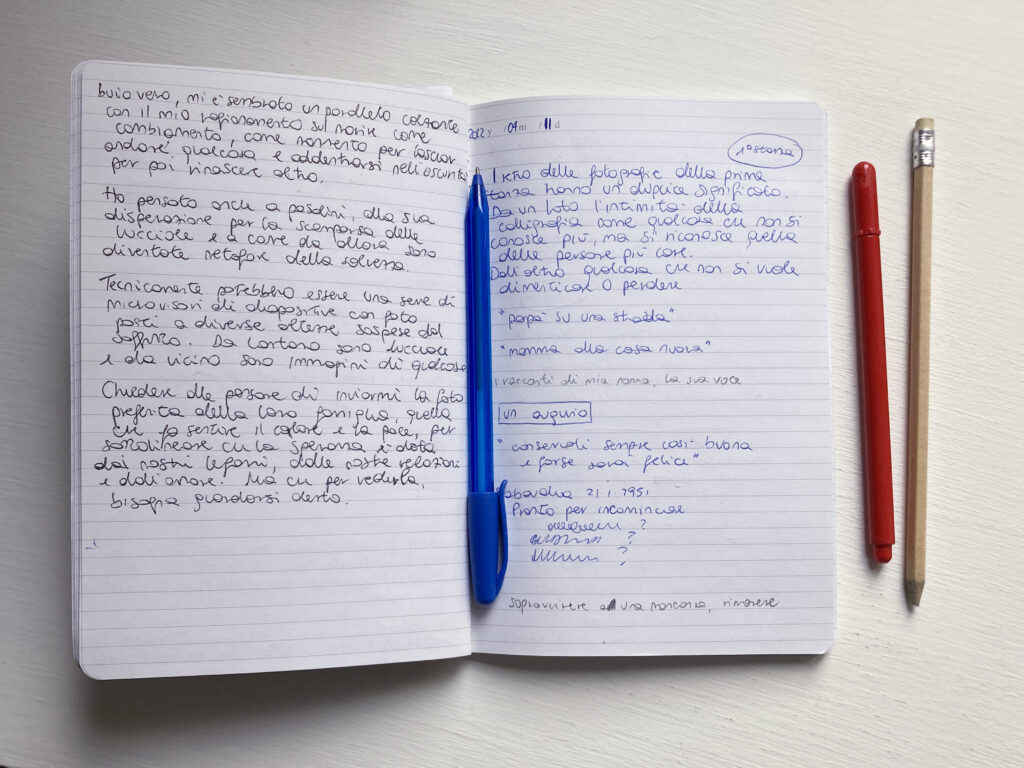 buio vero, mi è sembrato un parallelo calzante
con il mio ragionamento sul morire come
cambiamento, come momento per lasciar
andare qualcosa e addentrarsi nell'oscurità
per poi rinascere altro.
Ho pensato anche a pasolini, alla sua
disperazione per la scomparsa delle
lucciole e a come da allora sono
diventate metafore della salvezza.
Tecnicamente potrebbero essere una serie di
microvisori di diapositive con foto
posti a diverse altezze sospese dal
soffitto. Da lontano sono lucciole
e da vicino sono immagini di qualcosa
Chiedere alle persone di inviarmi la foto
preferita della loro famiglia, quella
che fa sentire il calore e la pace, per
sottolineare che la speranza è data
dai nostri legami, dalle nostre relazioni
e dall'amore. Ma che per vederla,
bisogna guardarsi dentro.
2022 y /04 m /11 d
1a stanza
I retro delle fotografie della prima
stanza hanno un duplice significato.
Da un lato l'intimità della
calligrafia come qualcosa che non si
conosce più, ma si riconosce quella
delle persone più care.
Dall'altro qualcosa che non si vuole
dimenticare o perdere
"papà su una strada"
"mamma alla casa nuova"
I racconti di mia nonna, la sua voce
un augurio
"conservati sempre così buona
e forse sarai felice"
21.1.1951
Pronto per incominciare
?
?
?
sopravvivere a una mancanza, rimanere